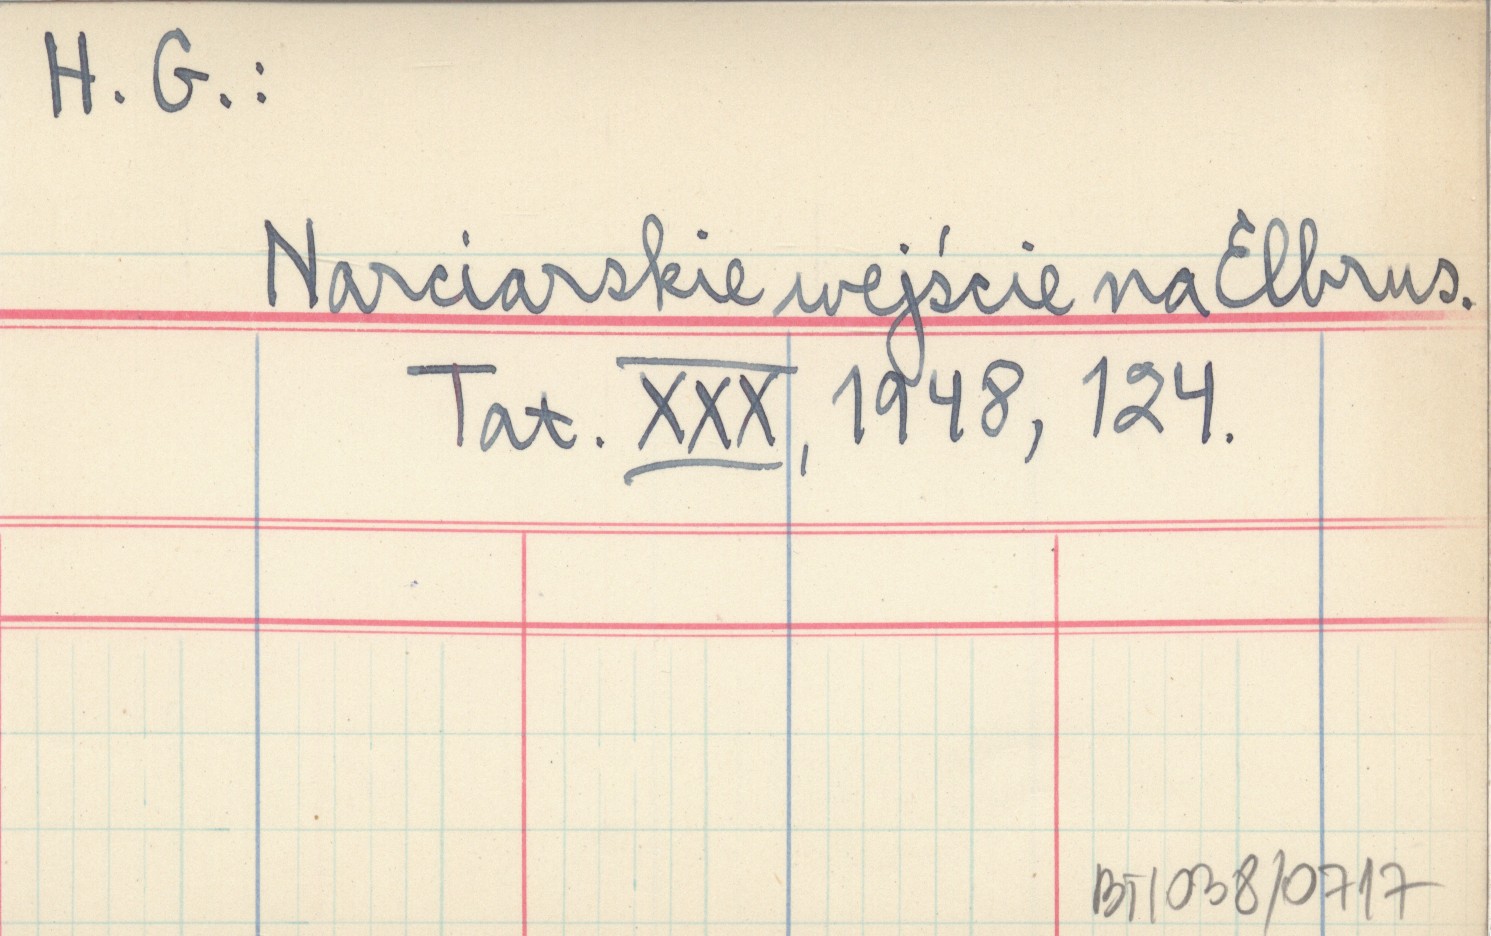 H. G.:
Narciarskie wejście na Elbrus.
Tat. XXX, 1948, 124.
BT/038/0717